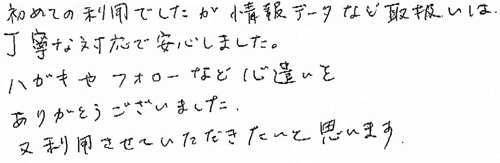 初めての利用でしたが情報データなど取扱いは
丁寧な対応で安心しました。
ハガキやフォローなど心遣いを
ありがとうございました.
又利用させていただきたいと思います.